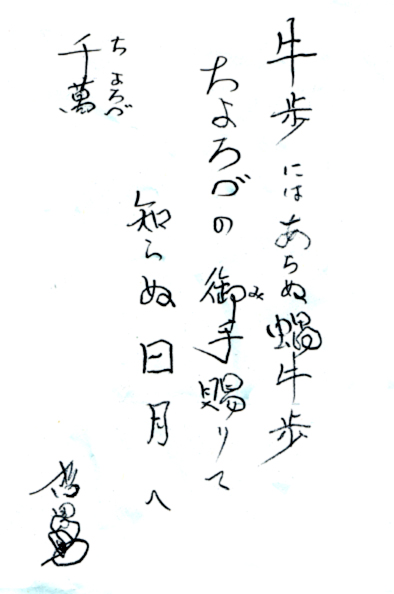 牛歩にはあらぬ蝸牛歩
ちよろづの御手賜りて
み
知らぬ日月へ
千萬
ち よろづ